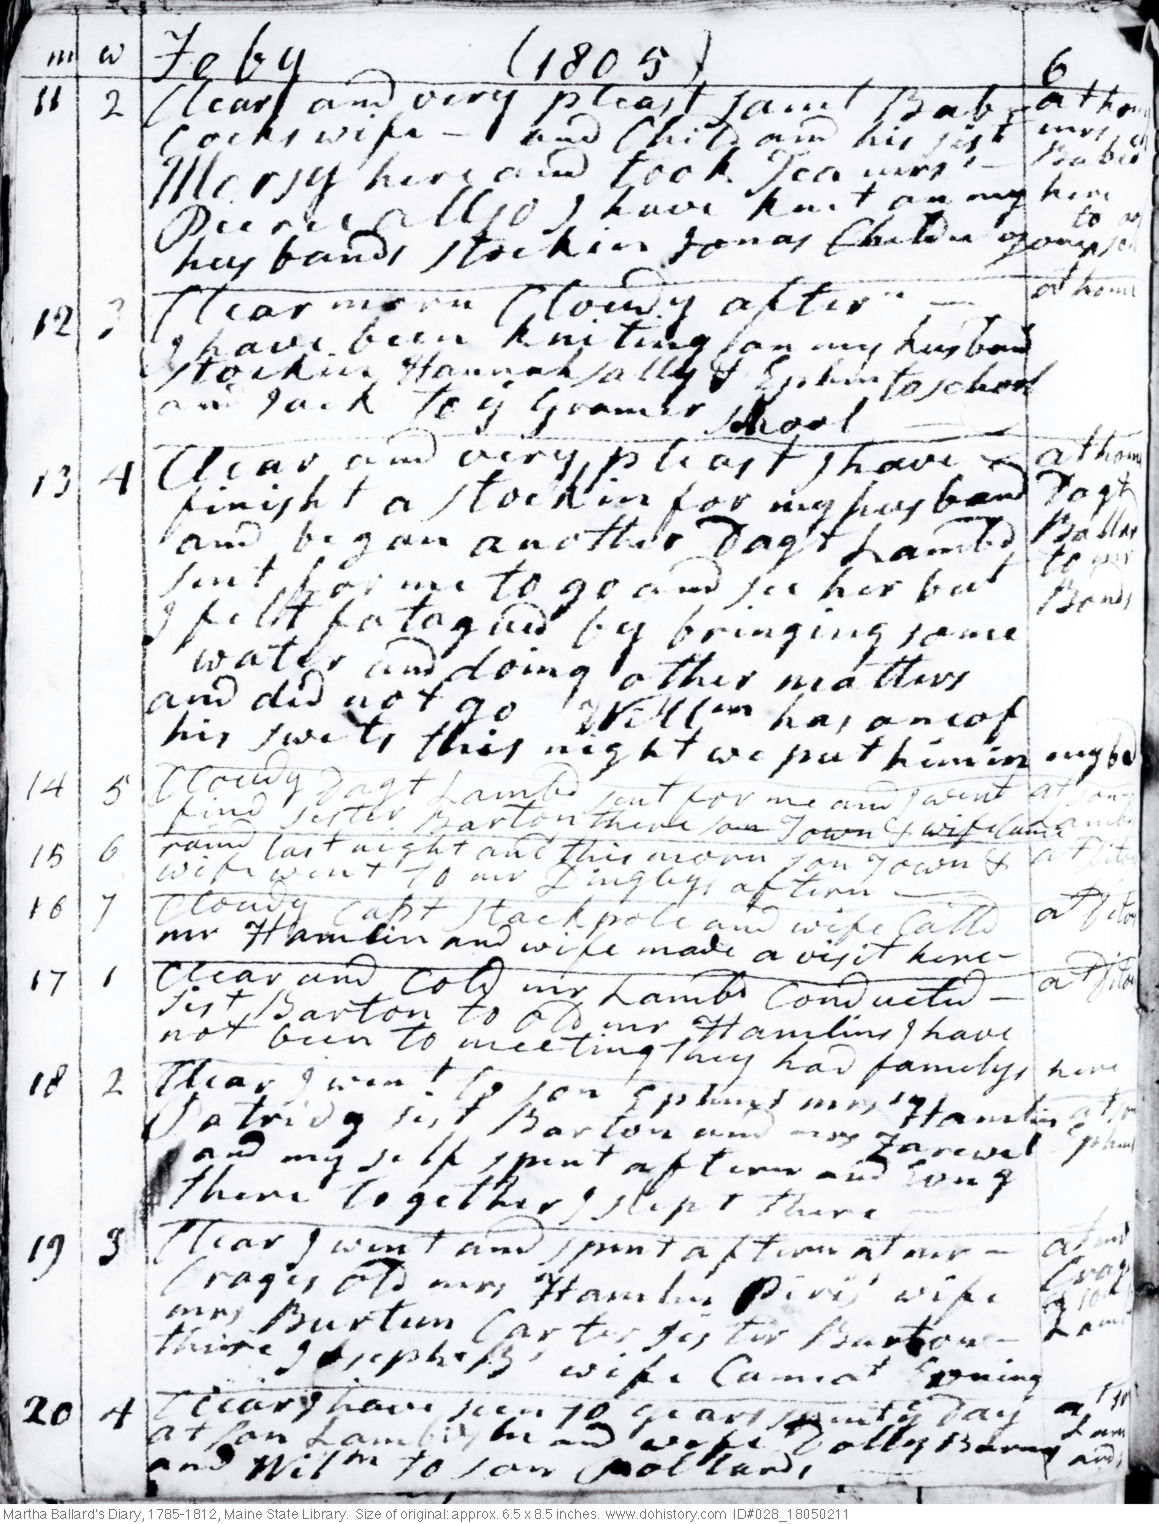 m w Feby (1805) 6
11 2 Clear and very pleast Saml Bab= at hom
cocks wife – and Child and his sist mrs
Mersy here and took Tea mrs – Babco
Peirce allso I have knit on my here
husbands stockin Jonas Childn
12 3 Clear morn Cloudy aftern – at home
I have been kniting on my husband
stockin Hannah Sally & Ephm to school
and Jack to ye Gramer school
13 4 Clear and very pleast I have – at home
finisht a stockin for my husband Dagt
and began another Dagt Lambd Ballar
sent for me to go and see her but to
I felt fatagud by bringing some Bonds
water and doing other matters
and did not go Willm has one of
his swets this night we put him in my bd
14 5 Cloudy Dagt Lambd sent for me and I went at son
find sister Barton there son Town & wife Came Lambd
15 6 raind last night and this morn son Town & at Ditos
wife went to mr Dinglys aftern –
16 7 Cloudy Capt Stackpole and wife Calld at Ditos
mr Hamlin and wife made a visit here –
17 1 Clear and Cold mr Lambd Conducted – at Ditos
sist Barton to old mr Hamlins I have
not been to meeting they had familys here
18 2 Clear I went to son Ephms mrs Hamlin at son
Patridg sist Barton and mrs Farewel Ephms
and my self spent aftern and Evng
there together I slept there –
19 3 Clear I went and spent aftern at mr – at mr
Crages old mrs Hamlin Peris' wife Crags
mrs Burtun Carter sister Barton –
there Joseph B' wife Came at Evning Lamb
20 4 Clear I have seen 70 years spent ye Day at son
at son Lambds he and wife Dolly Barnes Lam
and Wilm to son Pollards and
Martha Ballard's Diary, 1785-1812, Maine State Library. Size of original: approx. 6.5 x 8.5 inches. www.dohistory.com ID#028_18050211